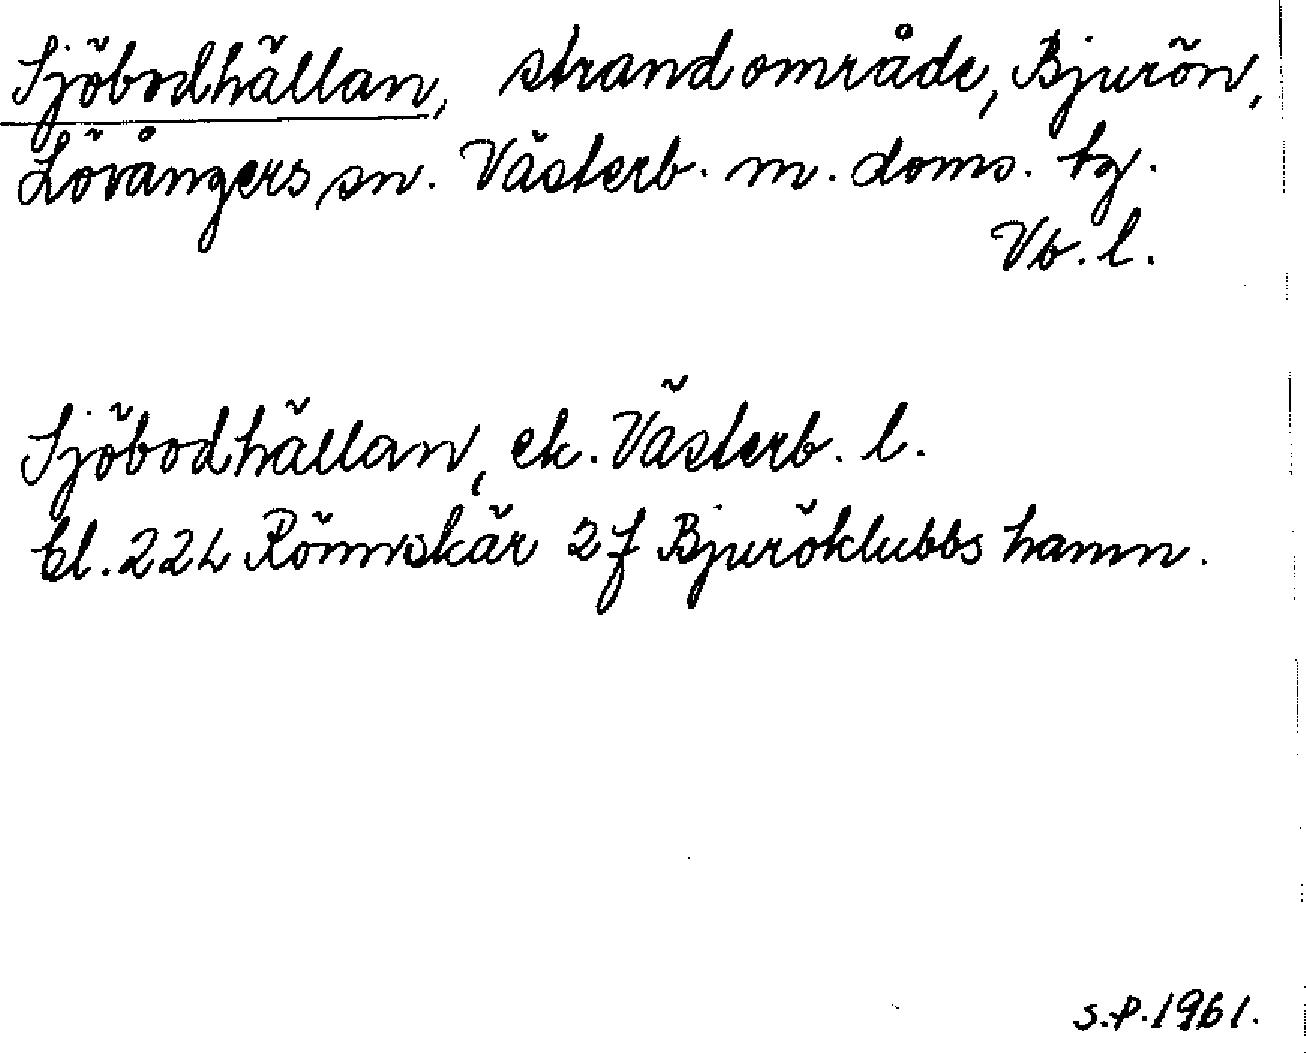 Sjöbodhällan, strandområde, Bjurön,
Lövångers sn. Västerb. m. doms. tg.
Vb. l.
Sjöbodhällan, ek. Västerb. l.
bl. 22L Rönnskär 2f Bjuröklubbs hamn.
S.P. 1961.